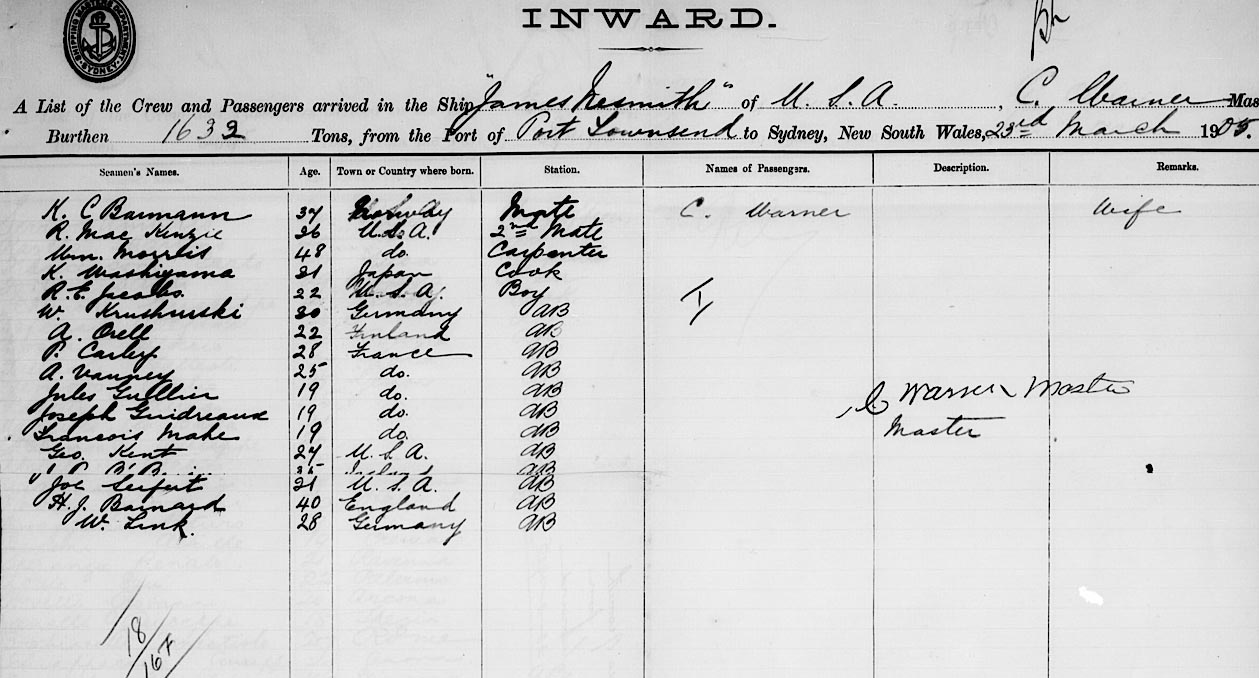 SHIPPING MASTERS DEPARTMENT SYDNEY
INWARD.
A List of the Crew and Passengers arrived in the Ship "James Nesmith" of U. S. A. , C. Warner Mas
Burthen 1633 Tons, from the Port of Port Townsend to Sydney, New South Wales, 23rd March 1905.
Seamen's Names. Age. Town or Country where born. Station. Names of Passengers. Description. Remarks.
K. C Baumann 34 Norway Mate C. Warner Wife
R. Mac Kenzie 26 U.S.A. 2nd Mate
Wm. Morris 48 do. Carpenter
K. Washiyama 31 Japan Cook
R. E. Jacobs. 22 U. S. A. Boy
W. Krushinski 30 Germany AB
A. Orell 22 Finland AB
P. Carley 28 France AB
A. Vanney 25 do. AB
Jules Guillier 19 do. AB
C Warner Master
Joseph Guidreaux 19 do. AB
Master
Francois Mahe 19 do. AB
Geo. Kent 24 U. S. A. AB
35 Ireland AB
Joe Seifert 21 U. S. A. AB
H. J. Barnard 40 England AB
W. Link. 28 Germany AB
18
167